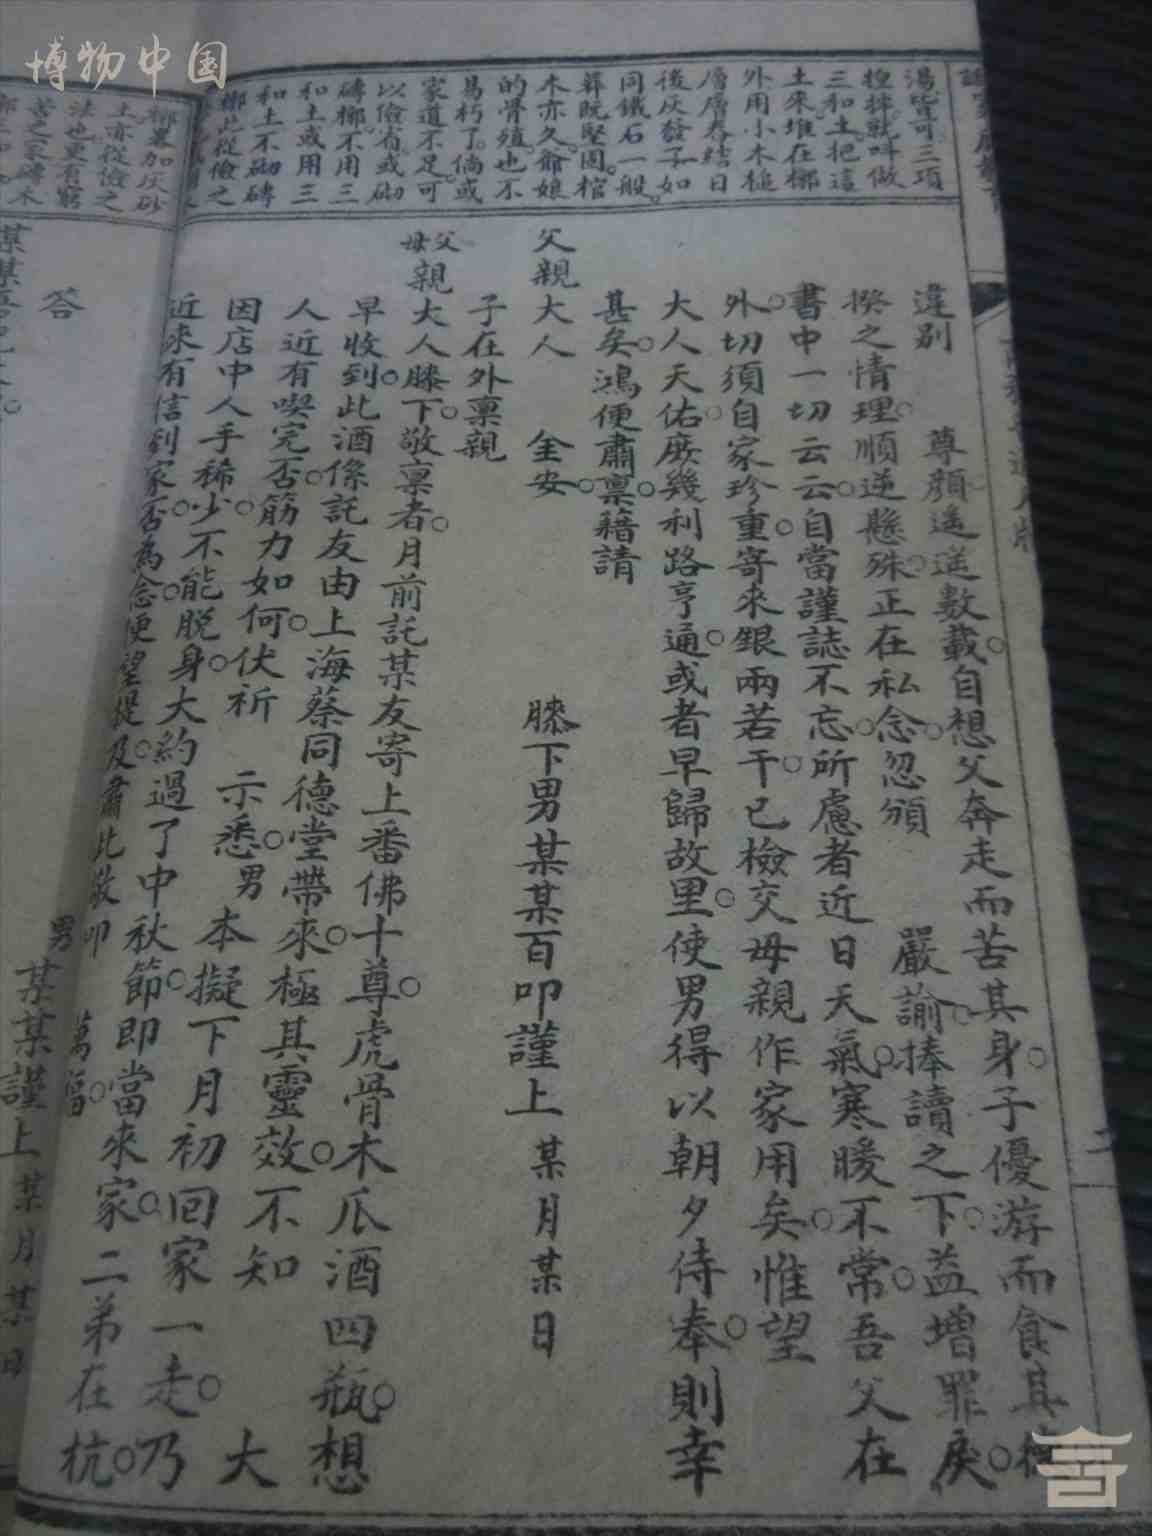 博物中国
湯皆可三項
三和土把這
土來堆在槨
外用小木槌
層層舂結日
後灰發子如
同鐵石一般
葬既堅固棺
木亦久爺娘
的骨殖也不
易朽了倘或
家道不足可
以儉省或砌
磚槨不用三
和土或用三
和土不砌磚
槨此從儉之
槨畧加灰砂
土亦從儉之
法也更有窮
苦之家磚木
違別 尊顏遥遥數載自想父奔走而苦其身子優游而食其
揆之情理順逆懸殊正在私念忽頒 嚴諭捧讀之下益增罪戾
書中一切云云自當謹誌不忘所慮者近日天氣寒暖不常吾父在
外切須自家珍重寄來銀兩若干已檢交母親作家用矣惟望
大人天佑庶幾利路亨通或者早歸故里使男得以朝夕侍奉則幸
甚矣鴻便肅禀藉請
父親大人 金安 膝下男某某百叩謹上 某月某日
子在外禀親
父母親大人膝下敬禀者月前託某友寄上番佛十尊虎骨木瓜酒四瓶想
早收到此酒係託友由上海蔡同德堂帶來極其靈效不知 大
人近有喫完否筋力如何伏祈 示悉男本擬下月初回家一走乃
因店中人手稀少不能脱身大約過了中秋節即當來家二弟在杭
近來有信到家否為念便望提及肅此敬叩 萬福
男某某謹上 某月某日
答